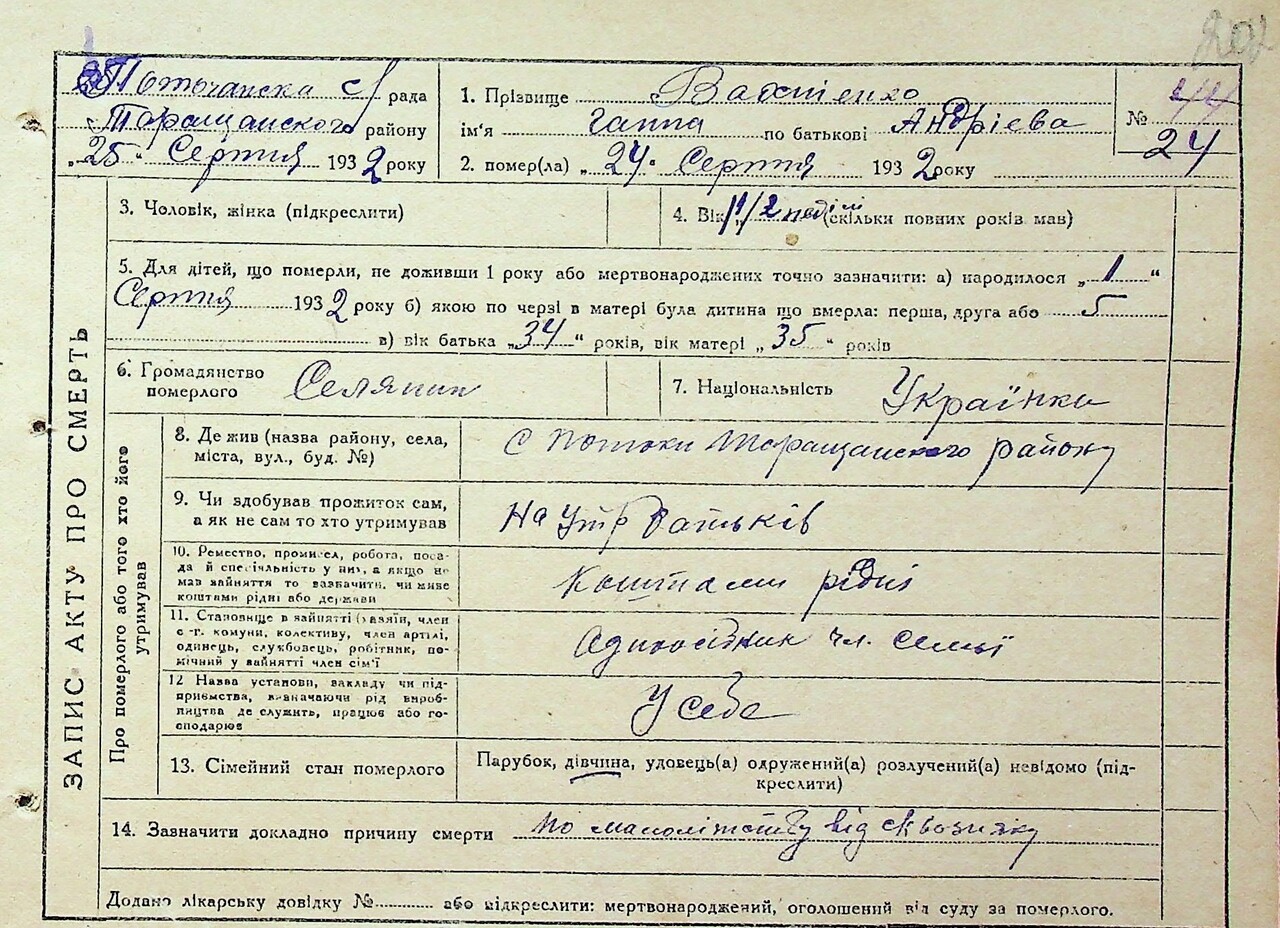 Поточанска с/рада
Таращанского району
„25“ Серпня 1932 року
1. Прізвище Вахненко
ім'я Ганна по батькові Андріева
2. помер(ла) „24“ Серпня 1932 року
№ 44
24
ЗАПИС АКТУ ПРО СМЕРТЬ
3. Чоловік, жінка (підкреслити)
4. Вік „1/2 неділі (скільки повних років мав)
5. Для дітей, що померли, не доживши 1 року або мертвонароджених точно зазначити: а) народилося „1“
Серпня 1932 року б) якою по черзі в матері була дитина що вмерла: перша, друга або 5
в) вік батька „34“ років, вік матері „35“ років
6. Громадянство
померлого Селянин
7. Національність Українка
Про померлого або того хто його
утримував
8. Де жив (назва району, села,
міста, вул., буд. №)
с Потоки Таращанского району
9. Чи здобував прожиток сам,
а як не сам то хто утримував
На утр батьків
10. Ремество, промисел, робота, поса-
да й спеціяльність у них, а якщо не
мав зайняття то зазначити, чи живе
коштами рідні або держави
Коштами рідні
11. Становище в зайнятті (хазяїн, член
с-г. комуни, колективу, член артілі,
одинець, службовець, робітник, по-
мічний у зайнятті член сім'ї
Одноосібник чл. семьї
12 Назва установи, закладу чи під-
приємства, визначаючи рід вироб-
ництва де служить, працює або го-
сподарює
У себе
13. Сімейний стан померлого
Парубок, дівчина, удовець(а) одружений(а) розлучений(а) невідомо (під-
креслити)
14. Зазначити докладно причину смерти по малолітству від сквозняку
Додано лікарську довідку № або відкреслити: мертвонароджений, оголошений від суду за померлого.